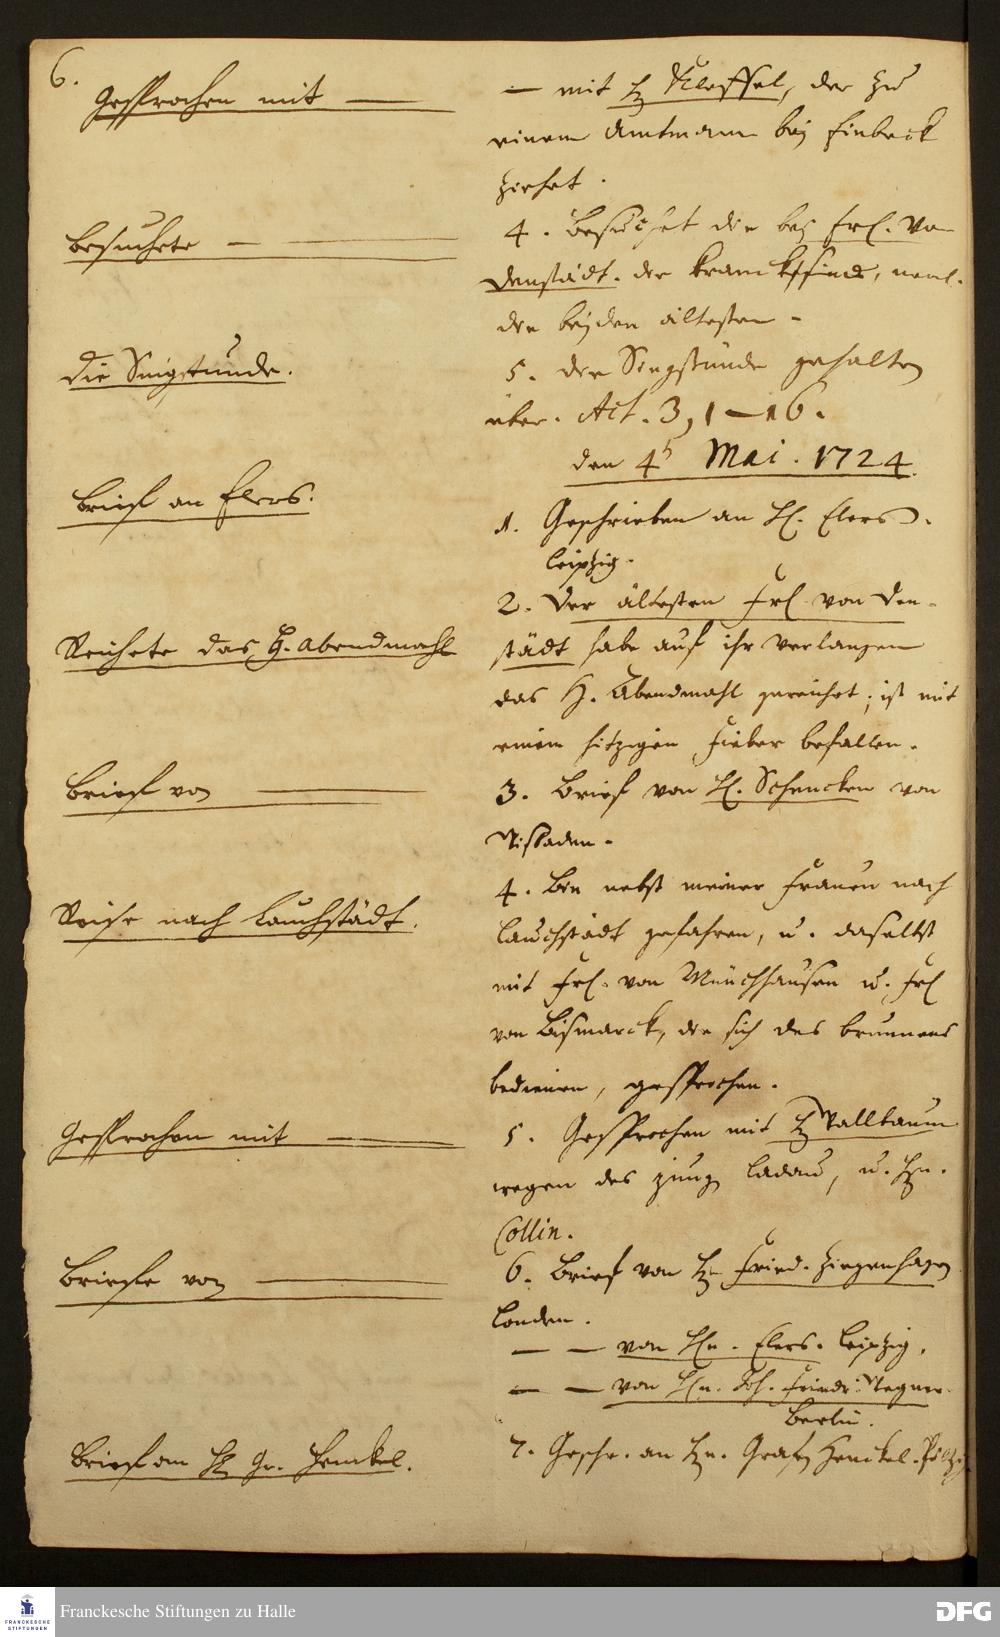 6.
Gesprochen mit —
— mit H. Kleffel, der zu
einem Amtmann bey Einbeck
ziehet.
Besuchete —
4. Besuchet die bey Frl. von
Denstädt. der kranck sind, neml.
die beyden ältesten -
Die Singstunde.
5. die Singstunde gehalten
über. Act. 3, 1—16.
den 4t Mai. 1724.
Brief an Elers.
1. Geschrieben an H. Elers
Leipzig.
2. Der ältesten Frl. von Den-
Reichete das H. Abendmahl
städt habe auf ihr verlangen
das H. Abendmahl gereichet; ist mit
einem hitzigen Fieber befallen.
Brief von
3. Brief von H. Schencken von
4. Bin nebst meiner Frauen nach
Reise nach Lauchstädt.
Lauchstädt gefahren, u. daselbst
mit Frl. von Münchhausen u. Frl
von Bismarck, die sich des brunnens
bedienen, gesprochen.
Gesprochen mit —
5. Gesprochen mit H. Wallbaum
wegen des jung Ladau, u. Hn.
Collin.
Briefe von
6. Brief von Hn Fried. Ziegenhagen
London.
— — von Hn. Elers. Leipzig.
— — von Hn. Joh. Friedr: Wegner.
Berlin.
Brief an H Gr. Henckel.
7. Geschr. an Hn. Grafen Henckel. Pöltzig
Franckesche Stiftungen zu Halle
FRANCKESCHE
STIFTUNGEN
DFG